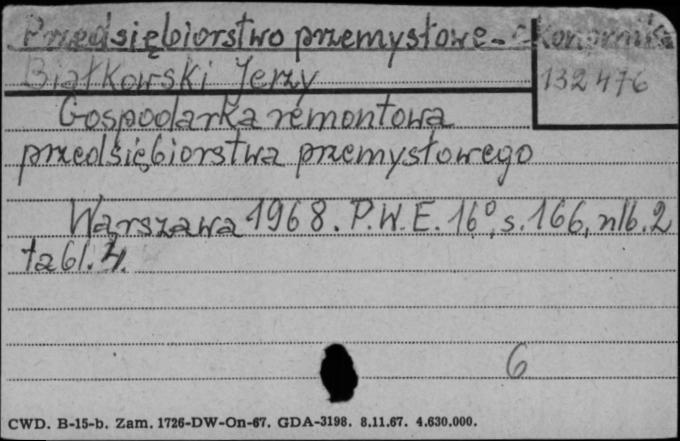 Przedsiębiorstwo przemysłowe - ekonomika
Białkowski Jerzy
132476
Gospodarka remontowa
przedsiębiorstwa przemysłowego
Warszawa 1968. P.W.E. 16°, s. 166, nlb. 2
tabl. 4.
6
CWD. B-15-b. Zam. 1726-DW-On-67. GDA-3198. 8.11.67. 4.630.000.